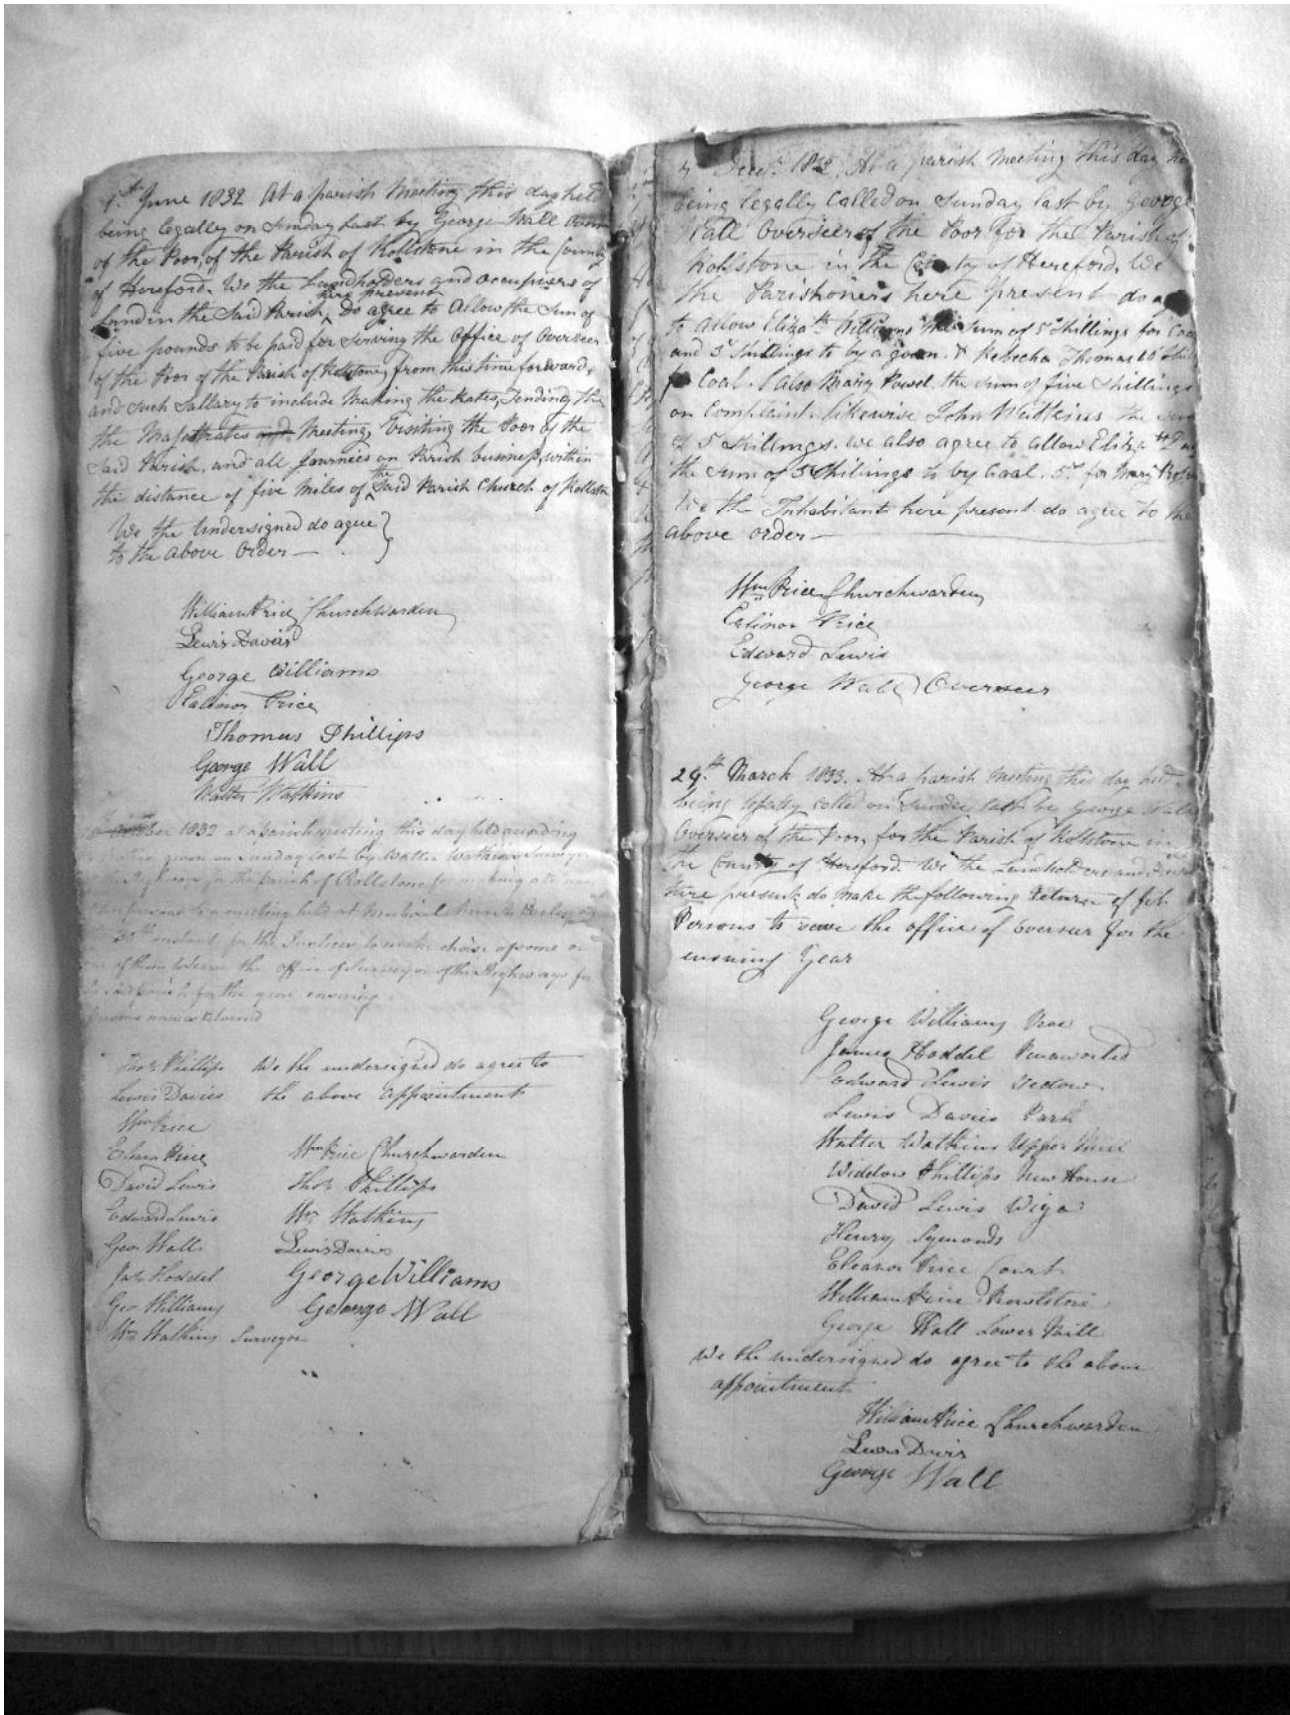 1st June 1832 At a parish Meeting this day held
being legally on Sunday Last by George Wall
of the Poor, of the Parish of Rollstone in the County
of Hereford. We the Landholders and occupiers of
here present
Land in the Said Parish, Do agree to Allow the Sum of
five pounds to be paid for Serving the Office of Overseer
of the Poor of the Parish of Rollstone, from this time forward,
and such Sallary to include Making the Rates, Tending the
the Majestrates Meeting, Visiting the Poor of the
Said Parish, and all Journies on Parish business, within
the distance of five Miles of the Said Parish Church of
We the Undersigned do agree
to the above Order
William Price Churchwarden
Lewis Davies
George Williams
Price
Thomas Phillips
George Wall
Walter Watkins
1832 at a parish meeting this day held
given on Sunday last by Walter Watkins
for the parish of Rollstone for making
to a meeting held at
30th instant for the Justices to make choise of some
of them to serve the office of Surveyor of the Highways for
parish for the year ensuing
names
Thos Phillips We the undersigned do agree to
Lewis Davies the above appointment
Wm Price
Price Wm Price Churchwarden
David Lewis Thos Phillips
Edward Lewis Wr Watkins
Geo Wall Lewis Davies
Jas Hoddel George Williams
Geo Williams George Wall
Wr Watkins Surveyor
At a parish Meeting this day
being legally Called on Sunday last by George
Wall Overseer of the Poor for the Parish of
Rollstone in the County of Hereford. We
the Parishoners here present do
to allow Elizath Williams the Sum of 5 Shillings for
and 3 Shillings to by a gown. & Rebecha Thomas
Coal. Also Mairy Powel the sum of five Shillings
on Complaint. likewise John Watkins the
of 5 Shillings. we also agree to allow
the Sum of 5 Shillings to by Coal. 5s for
We the Inhabitants here present do agree to the
above order
Wm Price Churchwarden
Price
Edward Lewis
George Wall Overseer
29th March 1833. At a parish Meeting this day held
being legally called on Sunday last by George Wall
Overseer of the Poor, for the Parish of Rollstone in
the County of Hereford. We the Landholders and
here present do make the following Return of fit
Persons to serve the office of Overseer for the
ensuing Year
George Williams
James Hoddel
Edward Lewis
Lewis Davies Park
Walter Watkins Upper
Widdow Phillips New House
David Lewis
Henry Symonds
Eleanor Price Court
William Price
George Wall Lower Mill
We the undersigned do agree to the above
appointment
William Price Churchwarden
Lewis Davis
George Wall